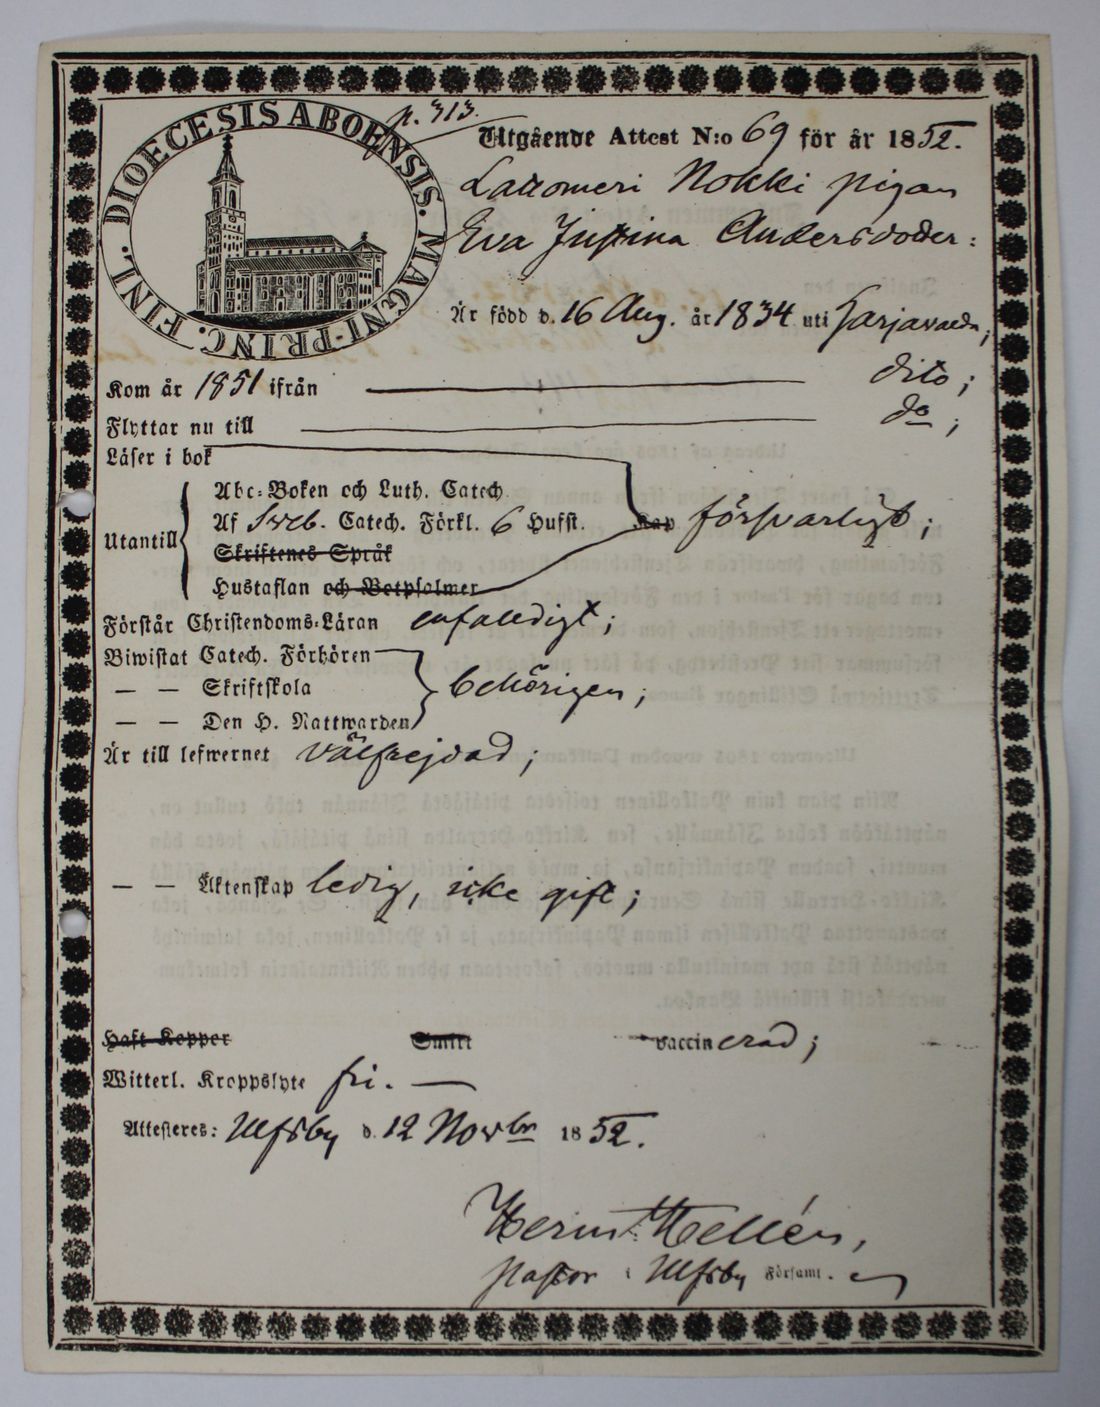 DIOECESIS ABOENSIS. MAGNI-PRINC. FINL.
p. 313.
Utgående Attest N:o 69 för år 1852.
Lattomeri Nokki pigan
Eva Justina Andersdoder:
Är född d. 16 Aug. år 1834 uti Harjavalda;
Kom år 1851 ifrån dito;
Flyttar nu till do;
Läser i bok
Utantill
Abc-Boken och Luth. Catech.
Af Sveb. Catech. Förkl. 6 Hufst. Kap försvarligt;
Skriftenes Språk
Hustaflan och Botpsalmer
Förstår Christendoms-Läran enfaldigt;
Biwistat Catech. Förhören
— — Skriftskola behörigen;
— — Den H. Nattwarden
Är till lefwernet välfrejdad;
— — Äktenskap ledig, icke gift;
Haft Kopper Smitt vaccinerad;
Witterl. Kroppslyte fri. —
Attesteres: Ulfsby d. 12 Novbr 1852.
Herm. Hellén,
Pastor i Ulfsby Församl.